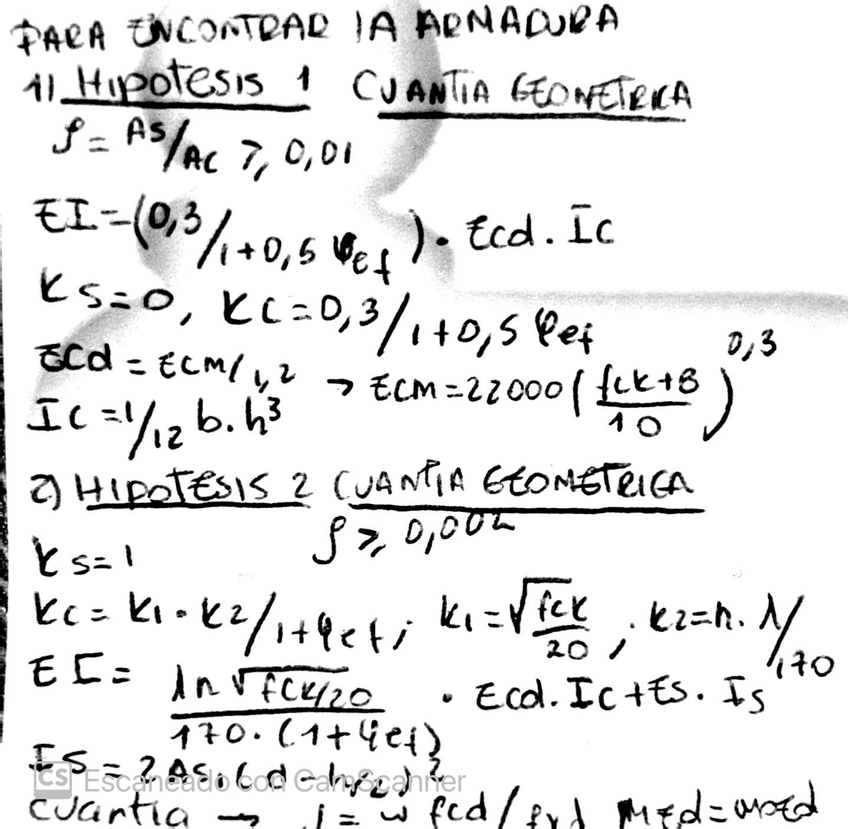 PARA ENCONTRAR LA ARMADURA
1) HIPOTESIS 1 CUANTIA GEOMETRICA
ρ = As/Ac ≥ 0,01
EI = (0,3/1+0,5 φef) · Ecd . Ic
Ks=0, KC=0,3/1+0,5 φef
Ecd = ECM/1,2 → ECM = 22000 ((fck+8)/10)^0,3
IC = 1/12 b.h³
2) HIPOTESIS 2 CUANTIA GEOMETRICA
ρ ≥ 0,002
Ks=1
Kc = K1 · K2/1+φef; K1 = √(fck/20); K2 = n. λ/170
EI = λn √fck/20 / 170. (1+φef) · Ecd. Ic + Es. Is
Is = 2 As. (d - h/2)²
CS Escaneado con CamScanner
cuantia → ρ = ω fcd / fyd MEd = moEd